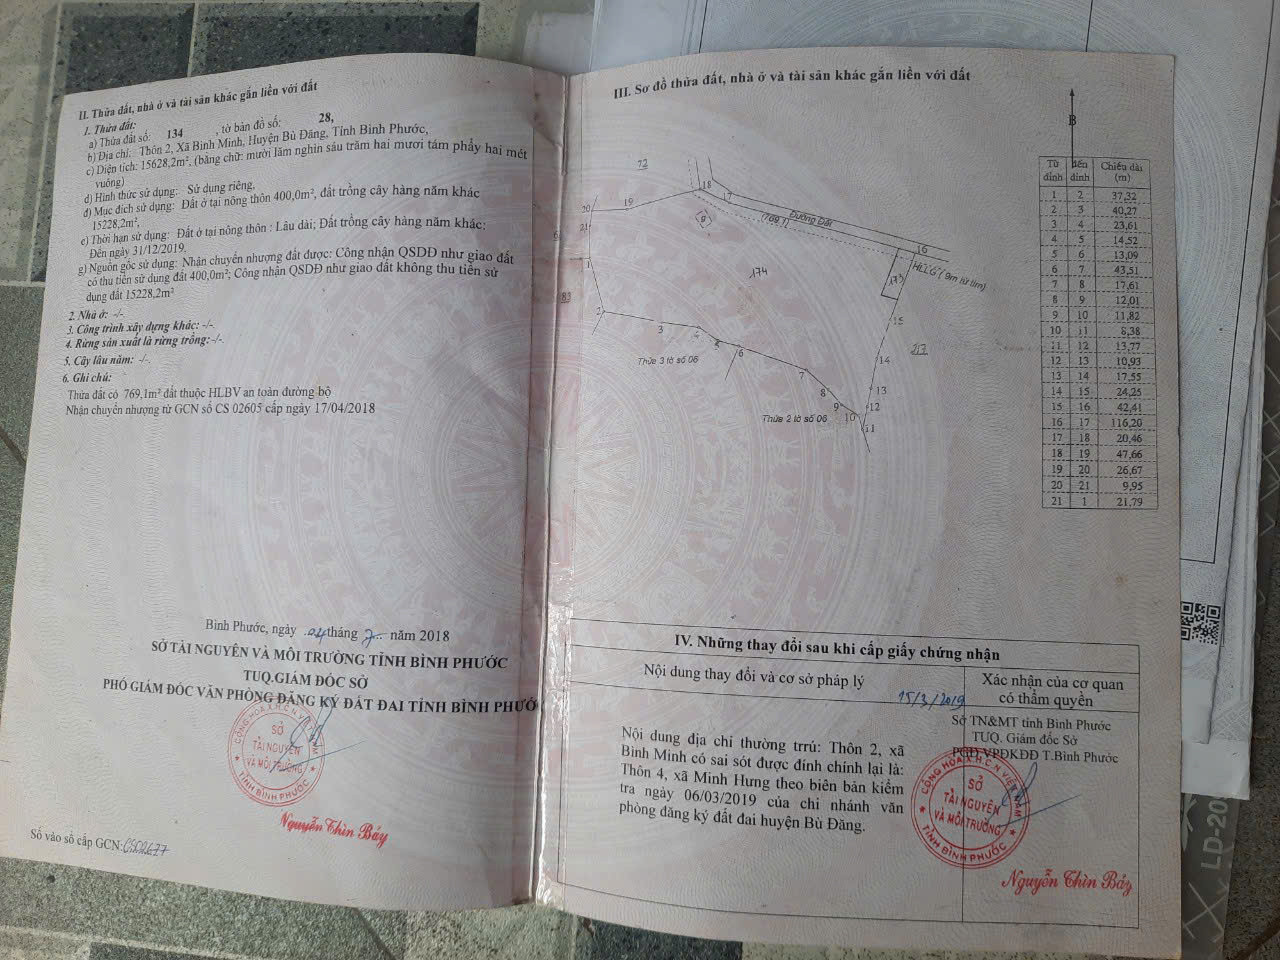 II. Thửa đất, nhà ở và tài sản khác gắn liền với đất
1. Thửa đất:
a) Thửa đất số: 134 , tờ bản đồ số: 28,
b) Địa chỉ: Thôn 2, Xã Bình Minh, Huyện Bù Đăng, Tỉnh Bình Phước,
c) Diện tích: 15628,2m², (bằng chữ: mười lăm nghìn sáu trăm hai mươi tám phẩy hai mét
vuông)
d) Hình thức sử dụng: Sử dụng riêng,
đ) Mục đích sử dụng: Đất ở tại nông thôn 400,0m², đất trồng cây hàng năm khác
15228,2m²,
e) Thời hạn sử dụng: Đất ở tại nông thôn : Lâu dài; Đất trồng cây hàng năm khác:
Đến ngày 31/12/2019,
g) Nguồn gốc sử dụng: Nhận chuyển nhượng đất được: Công nhận QSDĐ như giao đất
có thu tiền sử dụng đất 400,0m²; Công nhận QSDĐ như giao đất không thu tiền sử
dụng đất 15228,2m²
2. Nhà ở: -/-
3. Công trình xây dựng khác: -/-
4. Rừng sản xuất là rừng trồng: -/-
5. Cây lâu năm: -/-
6. Ghi chú:
Thửa đất có 769,1m² đất thuộc HLBV an toàn đường bộ
Nhận chuyển nhượng từ GCN số CS 02605 cấp ngày 17/04/2018
Bình Phước, ngày 04 tháng 7 năm 2018
SỞ TÀI NGUYÊN VÀ MÔI TRƯỜNG TỈNH BÌNH PHƯỚC
TUQ.GIÁM ĐỐC SỞ
PHÓ GIÁM ĐỐC VĂN PHÒNG ĐĂNG KÝ ĐẤT ĐAI TỈNH BÌNH PHƯỚC
CỘNG HÒA X.H.C.N VIỆT NAM
SỞ
TÀI NGUYÊN
VÀ MÔI TRƯỜNG
TỈNH BÌNH PHƯỚC
Nguyễn Thìn Bảy
Số vào sổ cấp GCN: CS02677
III. Sơ đồ thửa đất, nhà ở và tài sản khác gắn liền với đất
B
72
18
17
Đường Đất
(769.1)
16
HLLG ( 9m từ tim)
20
19
21
9
174
173
1
83
2
3
4
5
6
7
8
9
10
11
12
13
14
15
217
Thửa 3 tờ số 06
Thửa 2 tờ số 06
Từ đỉnh đến đỉnh Chiều dài (m)
1 2 37,32
2 3 40,27
3 4 23,61
4 5 14,52
5 6 13,09
6 7 43,51
7 8 17,61
8 9 12,01
9 10 11,82
10 11 8,38
11 12 13,77
12 13 10,93
13 14 17,55
14 15 24,25
15 16 42,41
16 17 116,20
17 18 20,46
18 19 47,66
19 20 26,67
20 21 9,95
21 1 21,79
IV. Những thay đổi sau khi cấp giấy chứng nhận
Nội dung thay đổi và cơ sở pháp lý
Xác nhận của cơ quan
có thẩm quyền
15/3/2019
Nội dung địa chỉ thường trrú: Thôn 2, xã
Bình Minh có sai sót được đính chính lại là:
Thôn 4, xã Minh Hưng theo biên bản kiểm
tra ngày 06/03/2019 của chi nhánh văn
phòng đăng ký đất đai huyện Bù Đăng.
Sở TN&MT tỉnh Bình Phước
TUQ. Giám đốc Sở
PGĐ VPĐKĐĐ T.Bình Phước
CỘNG HÒA X.H.C.N VIỆT NAM
SỞ
TÀI NGUYÊN
VÀ MÔI TRƯỜNG
TỈNH BÌNH PHƯỚC
Nguyễn Thìn Bảy
LD-20